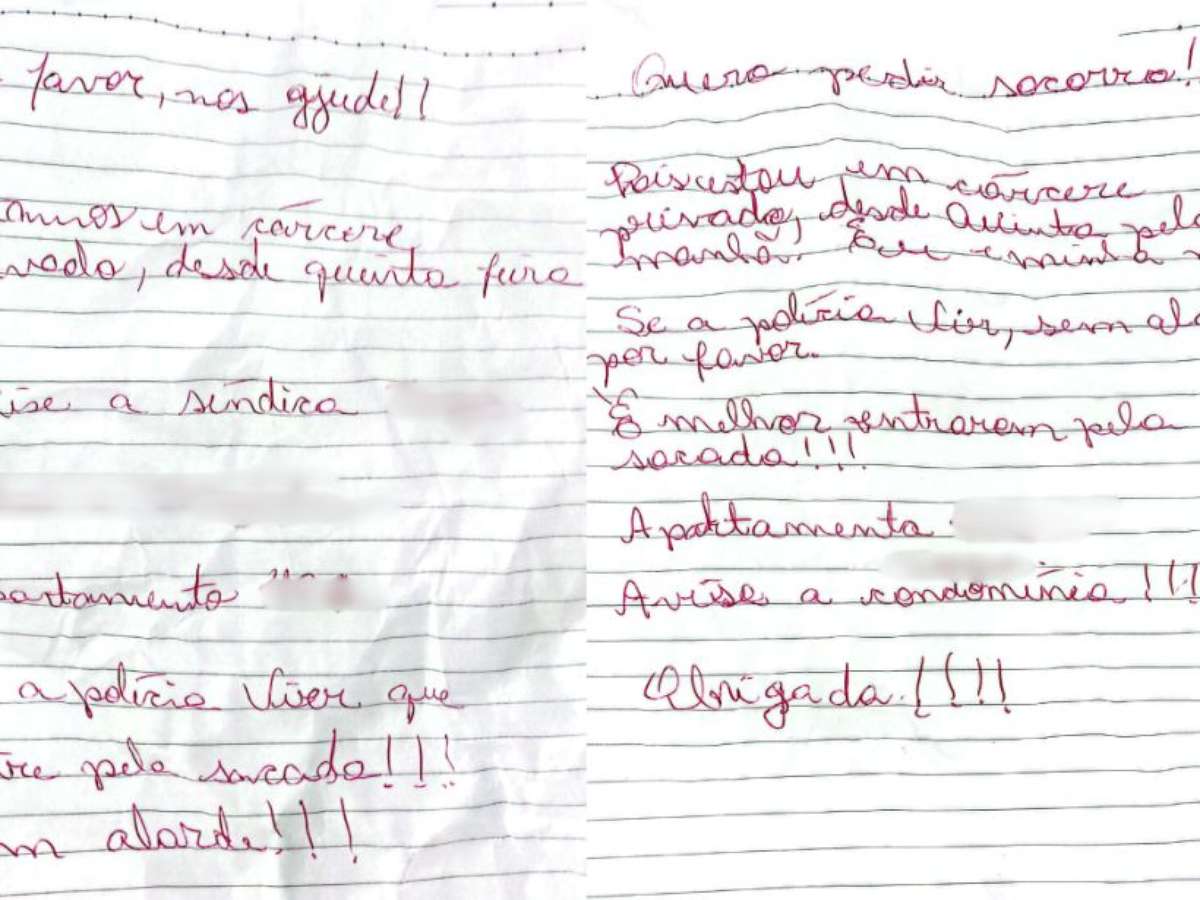 favor, nos ajude!!
amos em cárcere
vado, desde quinta feira
ise a síndica
partamento
a polícia vier que
tre pela sacada!!!
m alarde!!!
Quero pedir socorro!
Pois estou em cárcere
privado, desde Quinta pela
manhã. Eu e minha
Se a polícia vier, sem ala
por favor.
É melhor entrarem pela
sacada!!!
Apartamento
Avise a condomínio!!!
Obrigada!!!!